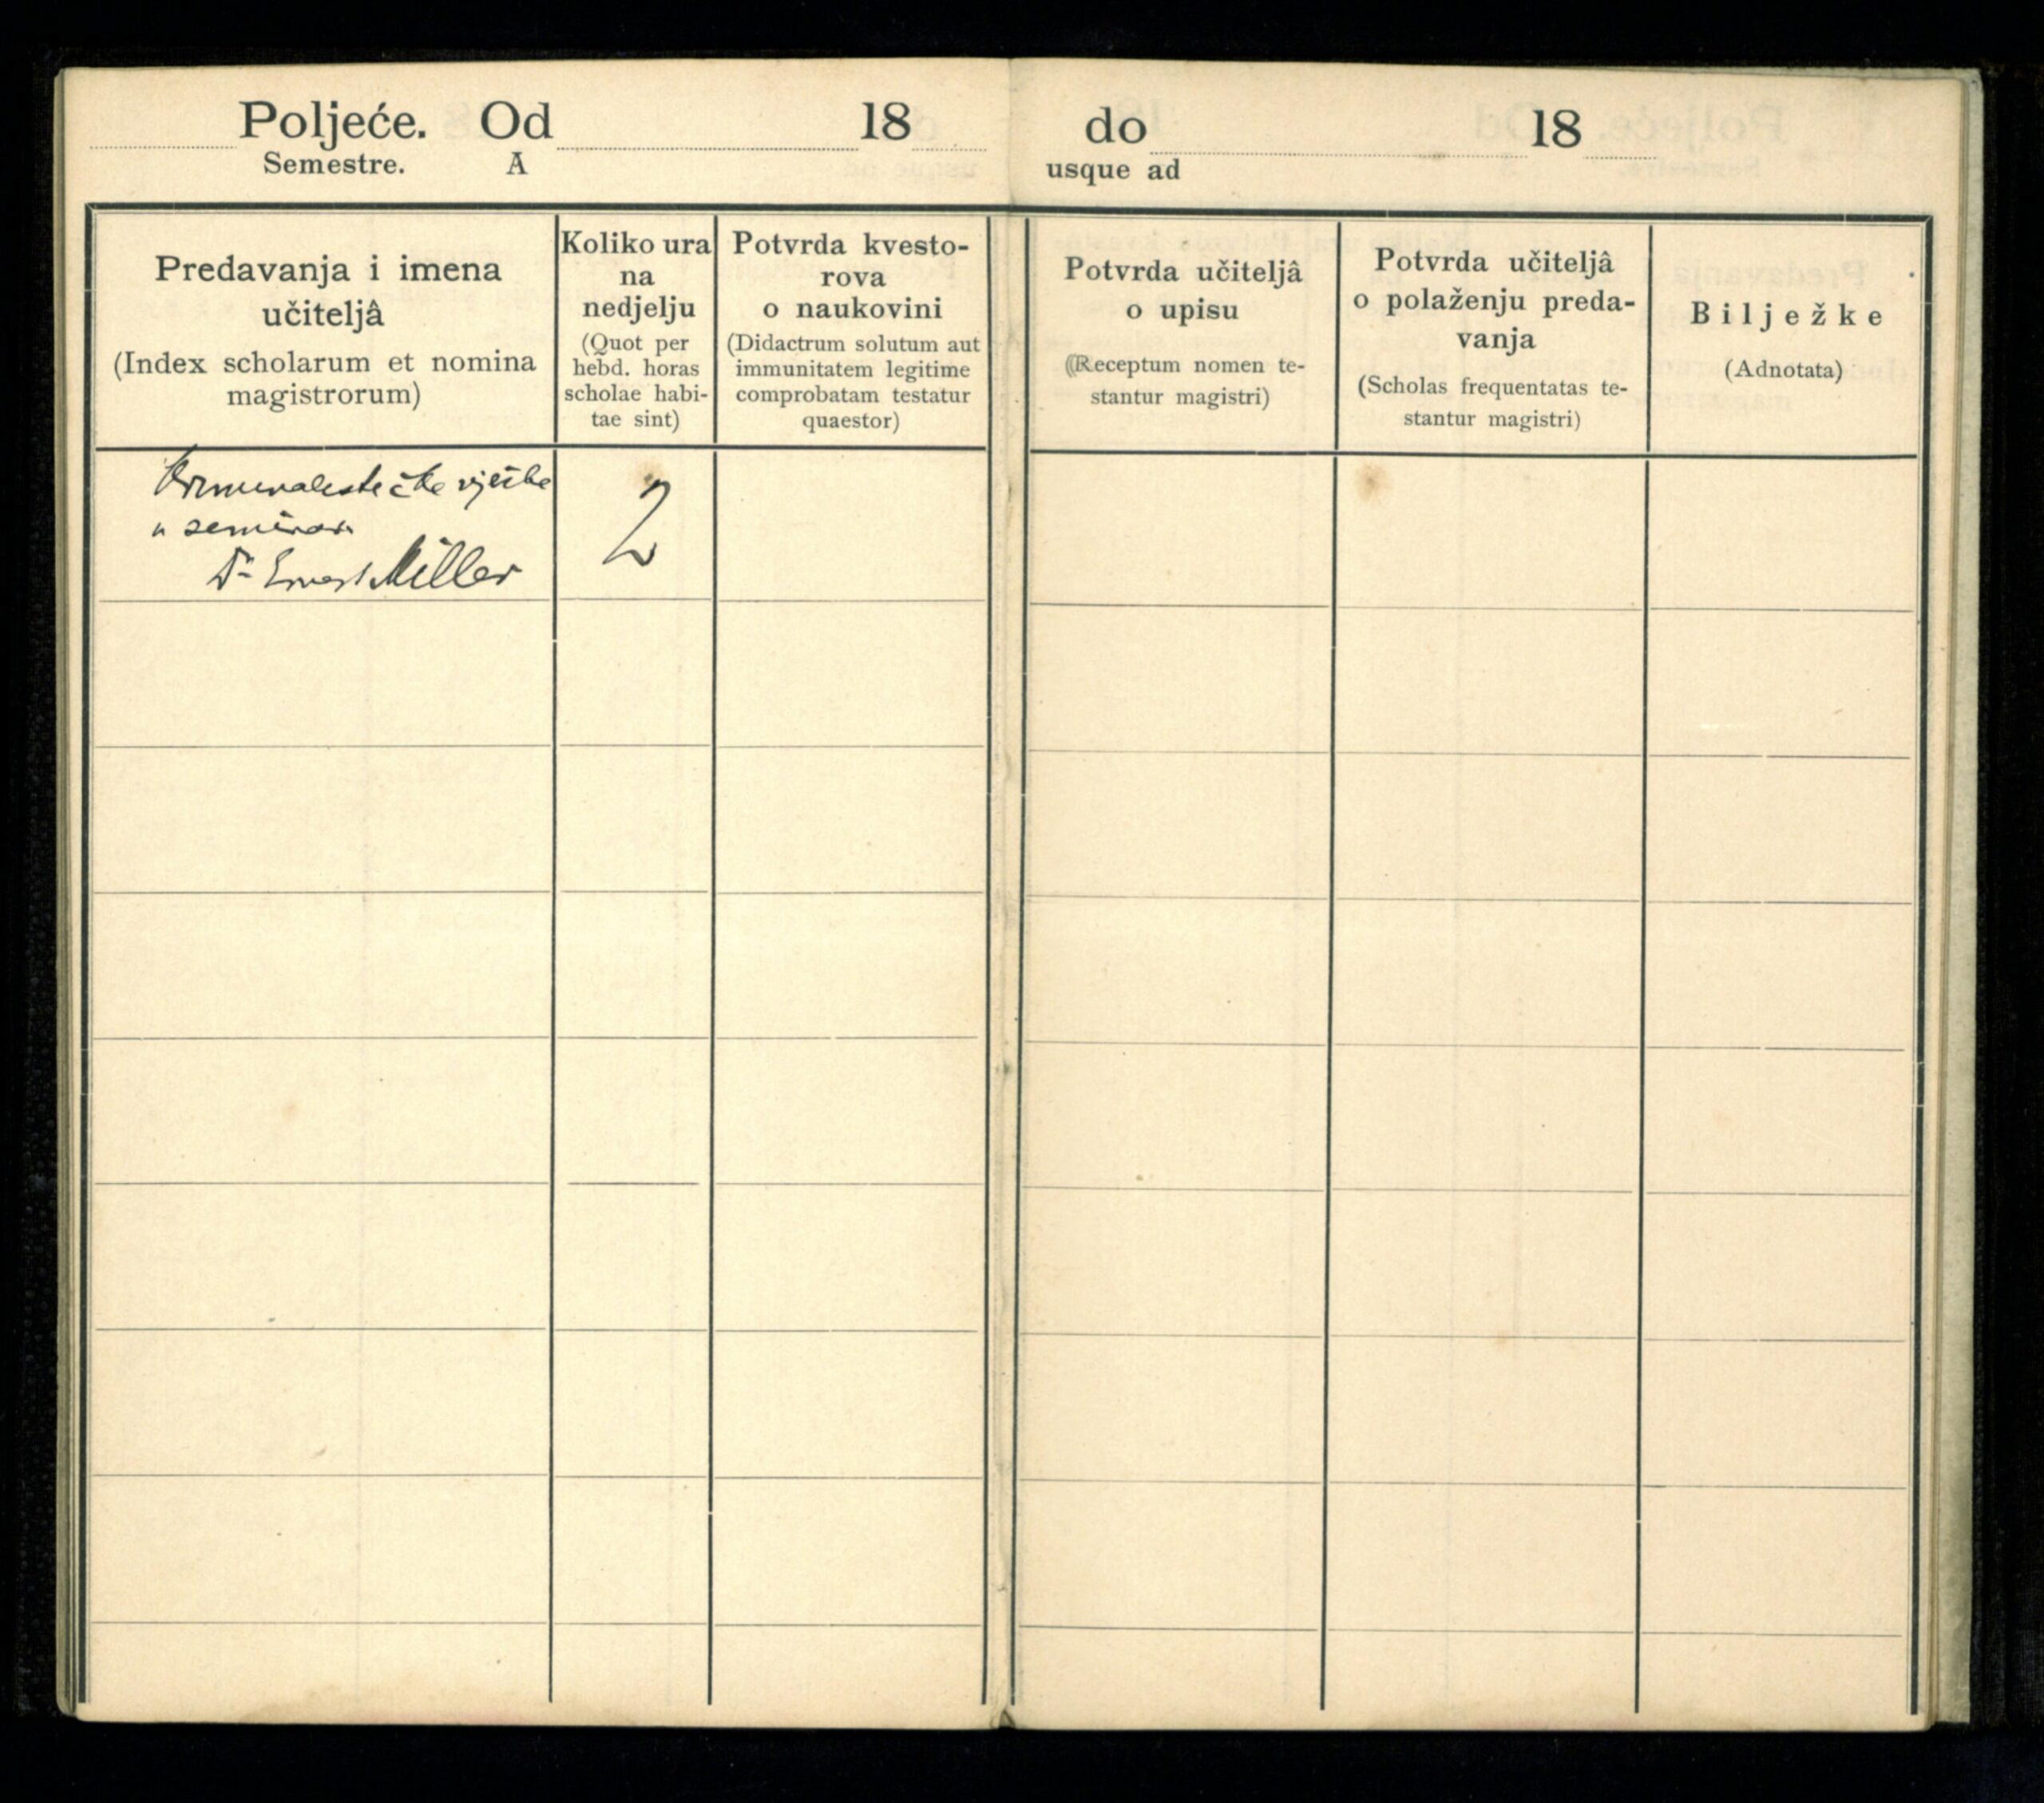 Poljeće. Od 18
Semestre. A
do 18
usque ad
Predavanja i imena
učiteljâ
(Index scholarum et nomina
magistrorum)
Koliko ura
na
nedjelju
(Quot per
hebd. horas
scholae habi-
tae sint)
Potvrda kvesto-
rova
o naukovini
(Didactrum solutum aut
immunitatem legitime
comprobatam testatur
quaestor)
Potvrda učiteljâ
o upisu
((Receptum nomen te-
stantur magistri)
Potvrda učiteljâ
o polaženju preda-
vanja
(Scholas frequentatas te-
stantur magistri)
Bilješke
(Adnotata)
Kriminalističke vježbe
u seminar
Dr Ernest Miller
2